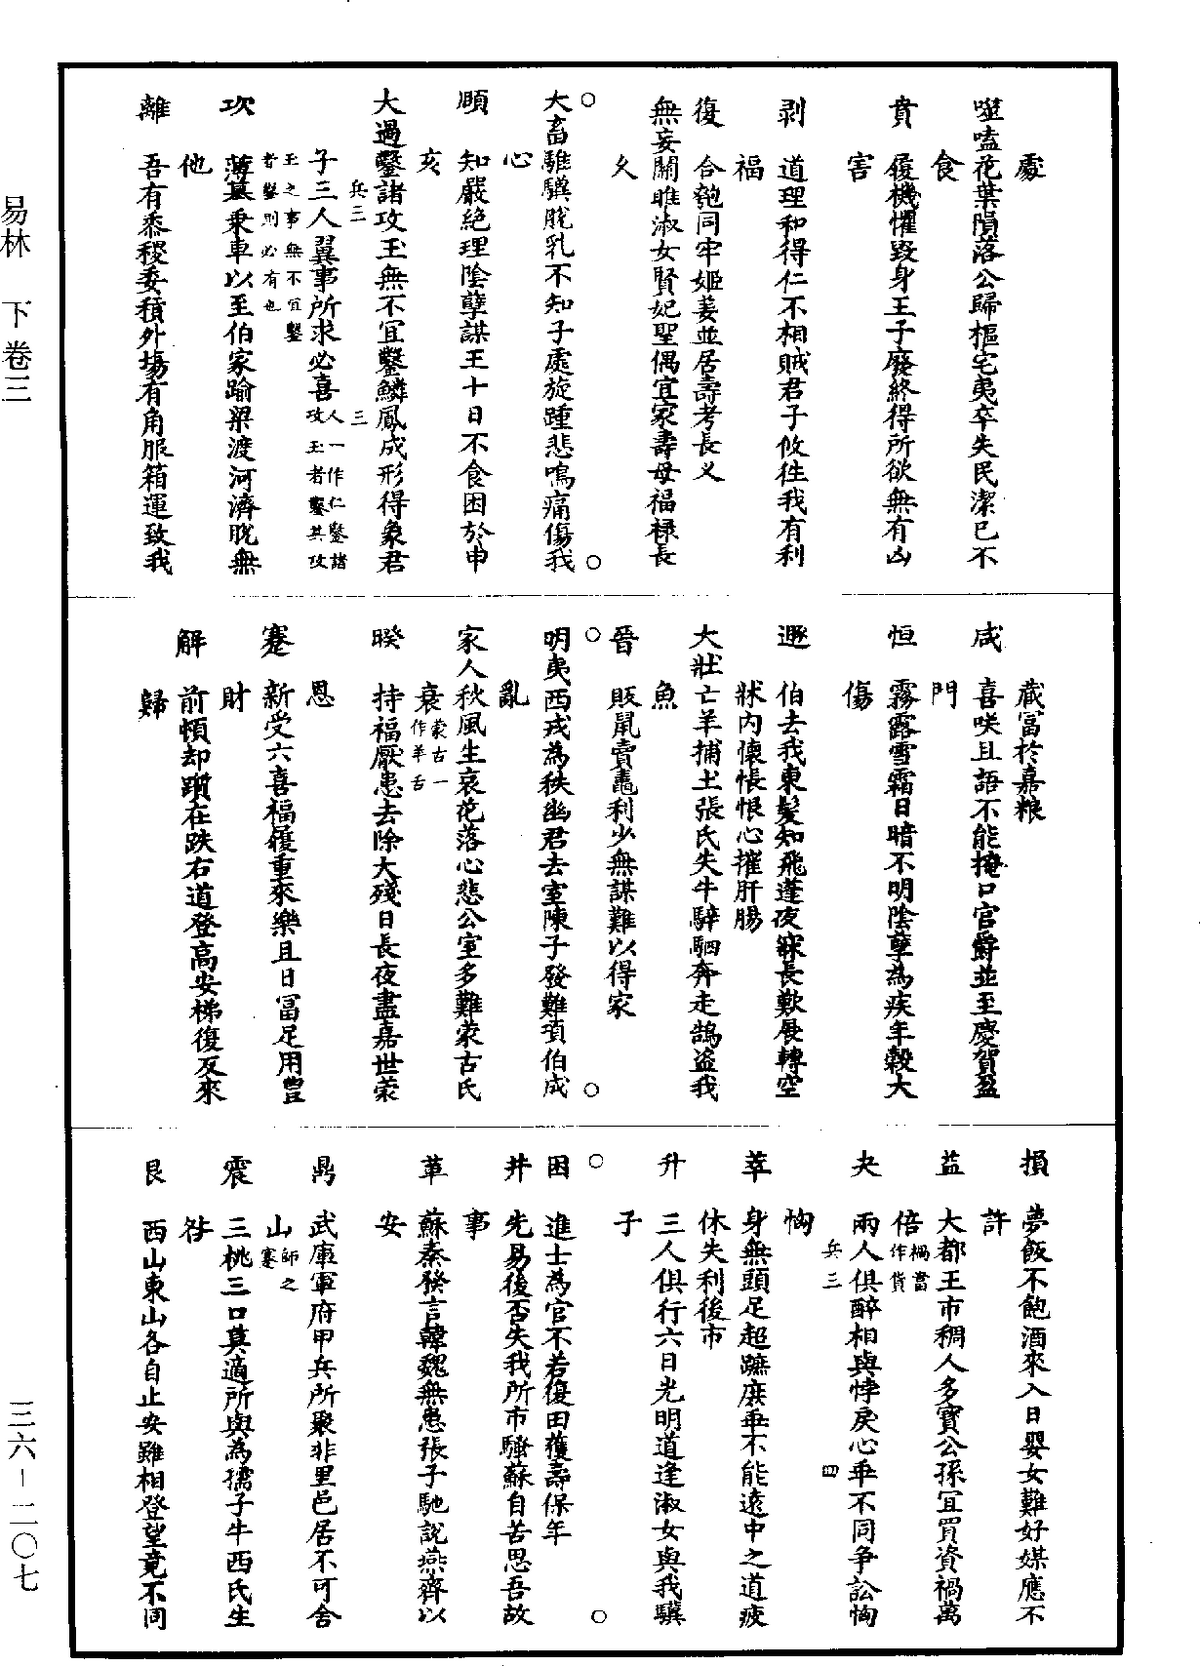 處
噬嗑花葉隕落公歸樞宅夷卒失民潔已不
食
賁　履機懼毀身王子廢終得所欲無有凶
害
剥　道理和得仁不相賊君子攸往我有利
福
復　合匏同牢姬姜並居壽考長乂
無妄關雎淑女賢妃聖偶宜家壽母福禄長
乂
○　○
大畜騅驥脱乳不知子處旋踵悲鳴痛傷我
心
頤　知嚴絶理陰孽謀王十日不食困於申
亥
大過鑿諸攻玉無不宜鑿鱗鳳成形得象君
兵三　三
子三人翼事所求必喜人一作仁鑿諸攻玉者鑿其攻
玉之事無不宜鑿者鑿則必有也
坎　薄墓乗車以至伯家踰梁渡河濟脱無
他
離　吾有黍稷委積外場有角服箱運致我
藏富於嘉粮
咸　喜咲且語不能掩口官爵並至慶賀盈
門
恒　霧露雪霜日暗不明陰孽為疾年穀大
傷
遯　伯去我東髮知飛蓬夜寐長歎展轉空
牀内懷悵恨心摧肝腸
大壯亡羊捕土張氏失牛騂駟奔走鵠盗我
魚
晉　販鼠賣䵷利少無謀難以得家
○　○
明夷西戎為秩幽君去室陳子發難項伯成
亂
家人秋風生哀花落心悲公室多難蒙古氏
衰蒙古一作羊舌
睽　持福厭患去除大殘日長夜盡嘉世蒙
恩
蹇　新受六喜福履重來樂且日富足用豊
財
解　前頓却躓在跌右道登高安梯復反來
歸
損　夢飯不飽酒來入日嬰女難好媒應不
許
益　大都王市稠人多寶公孫宜買資禍萬
倍禍當作貨
夬　兩人俱醉相與悖戾心乖不同爭訟恟
兵三　四
恟
萃　身無頭足超蹠庶乖不能遠中之道疲
休失利後市
升　三人俱行六日光明道逢淑女與我驥
子
○　○
困　進士為官不若復田獲壽保年
井　先易後否失我所市騷蘇自苦思吾故
事
革　蘇秦發言韓魏無患張子馳說燕齊以
安
鼎　武庫軍府甲兵所聚非里邑居不可舍
山師之蹇
震　三桃三口莫適所與為孺子牛西氏生
咎
艮　西山東山各自止安雖相登望竟不同
易林　下卷三
三六－二〇七